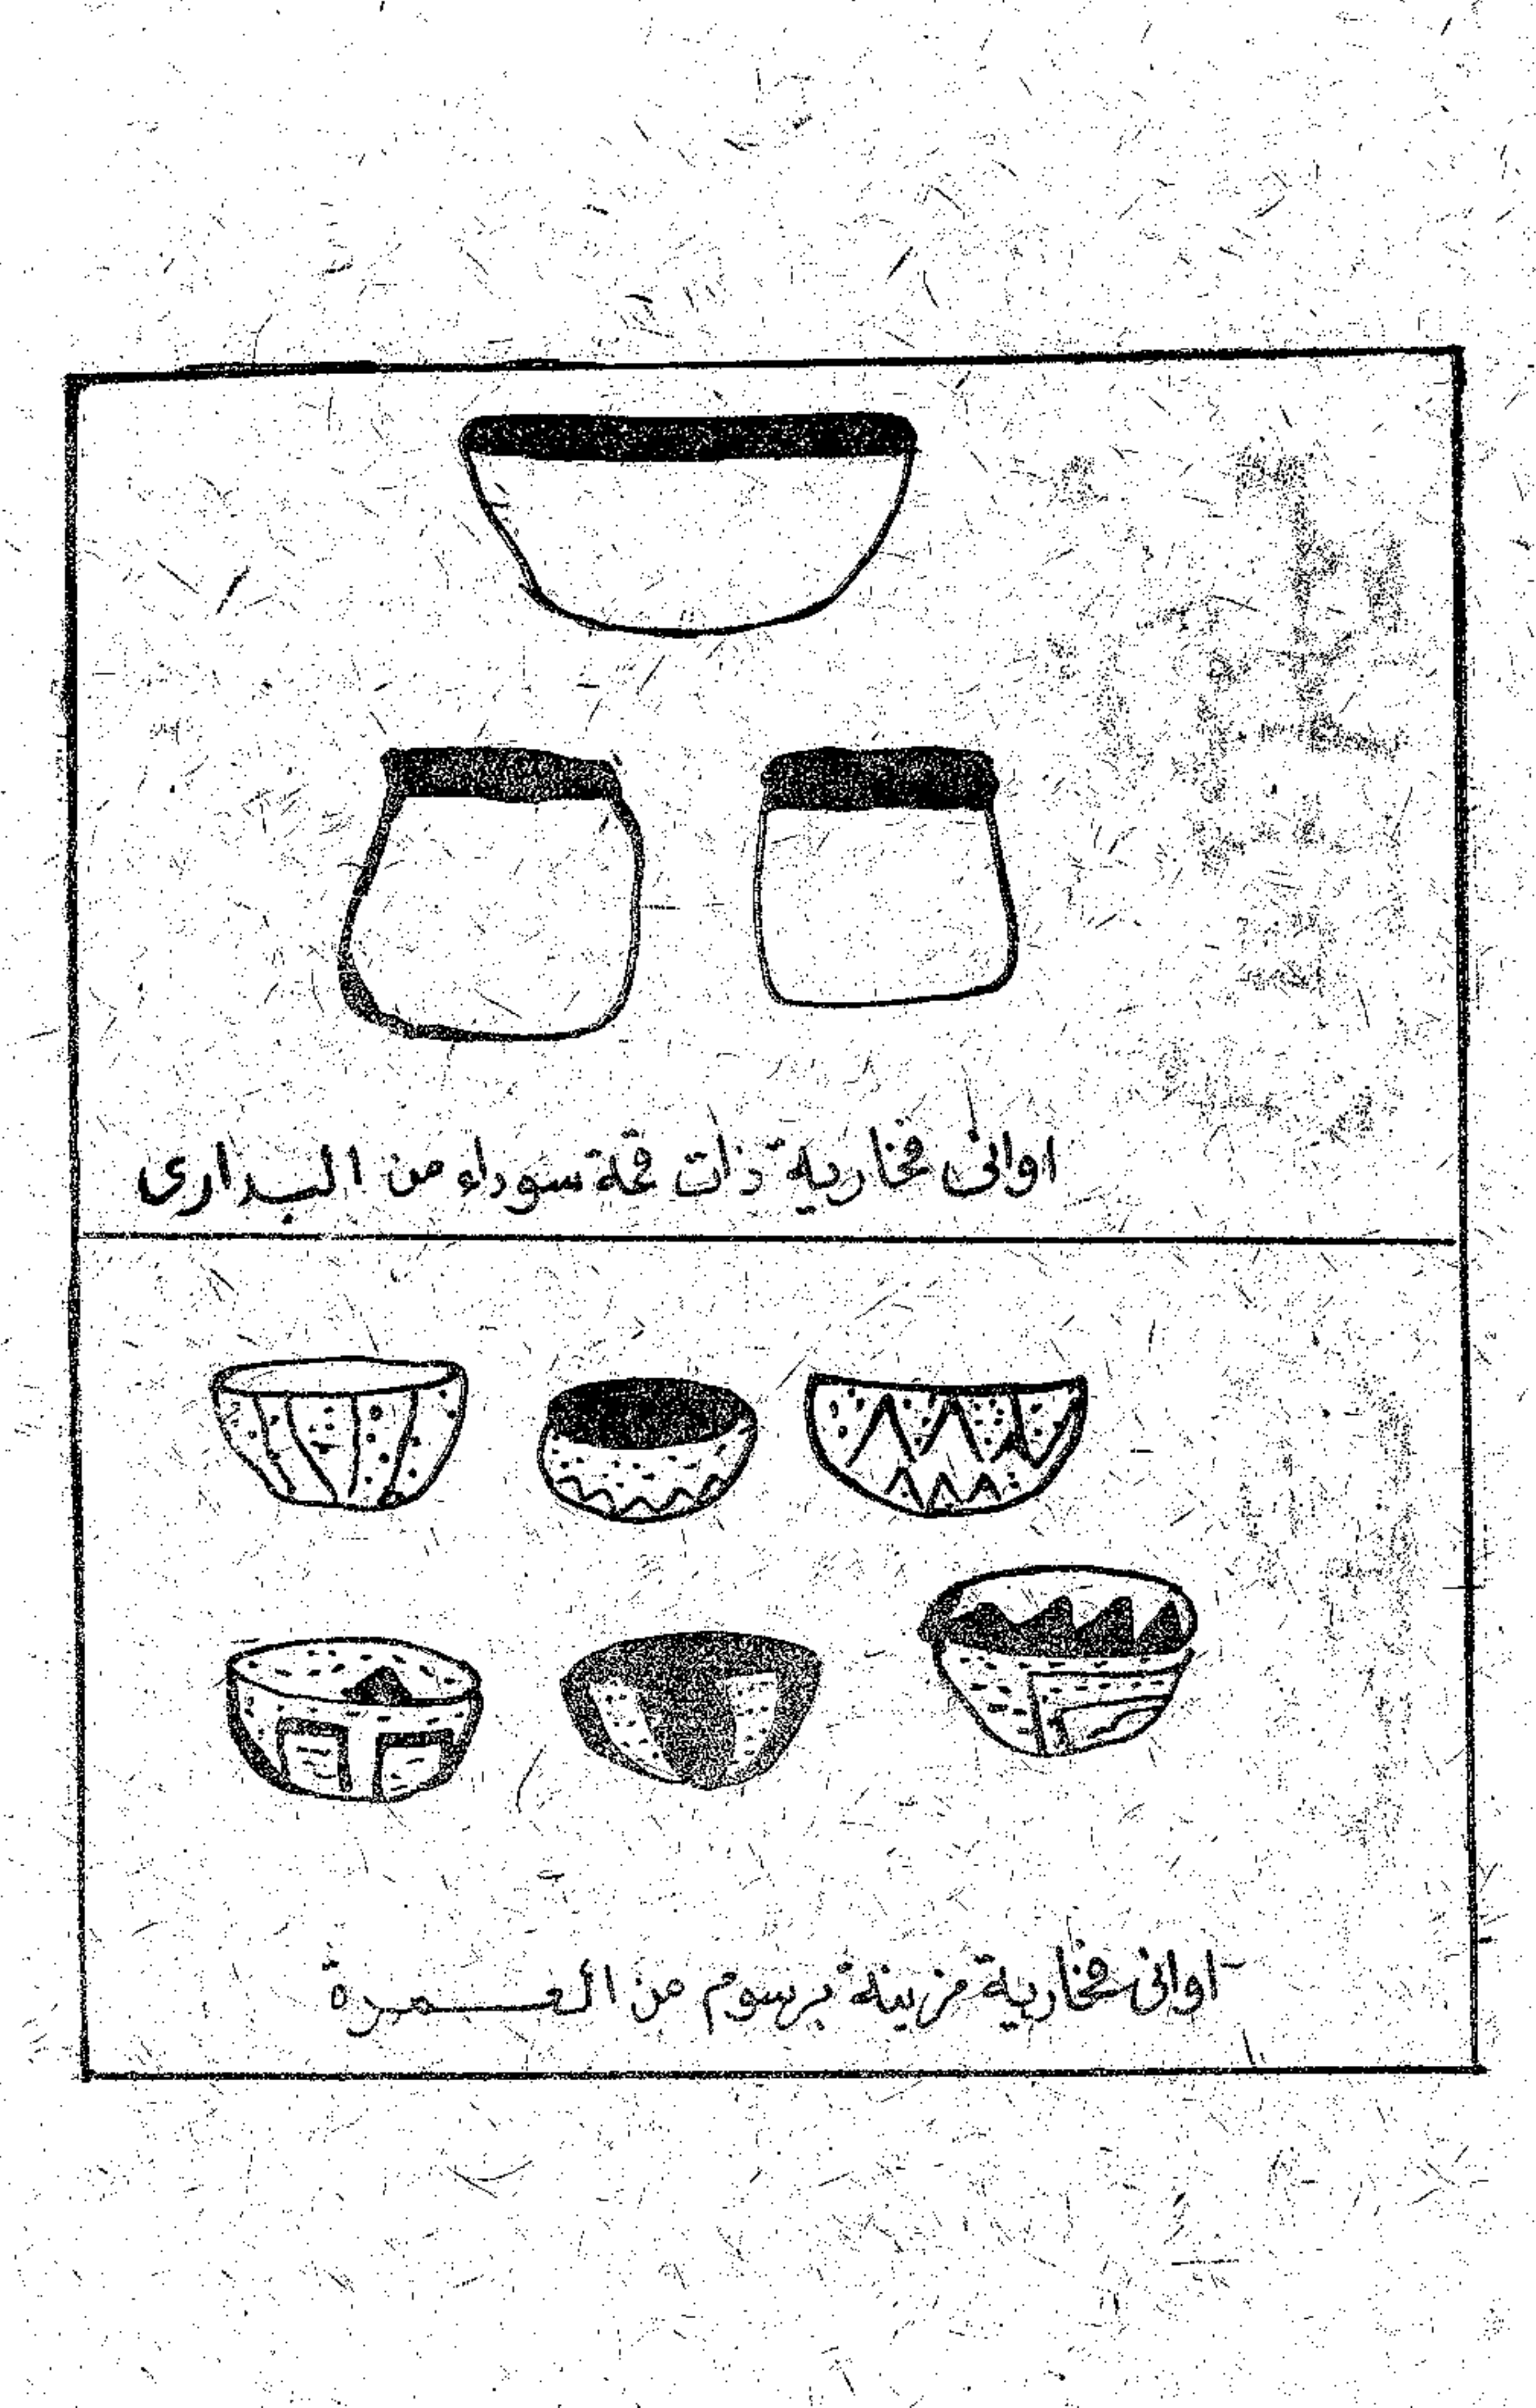 اوانى فخارية ذات قمة سوداء من البدارى
اوانى فخارية مزينة برسوم من العمرة